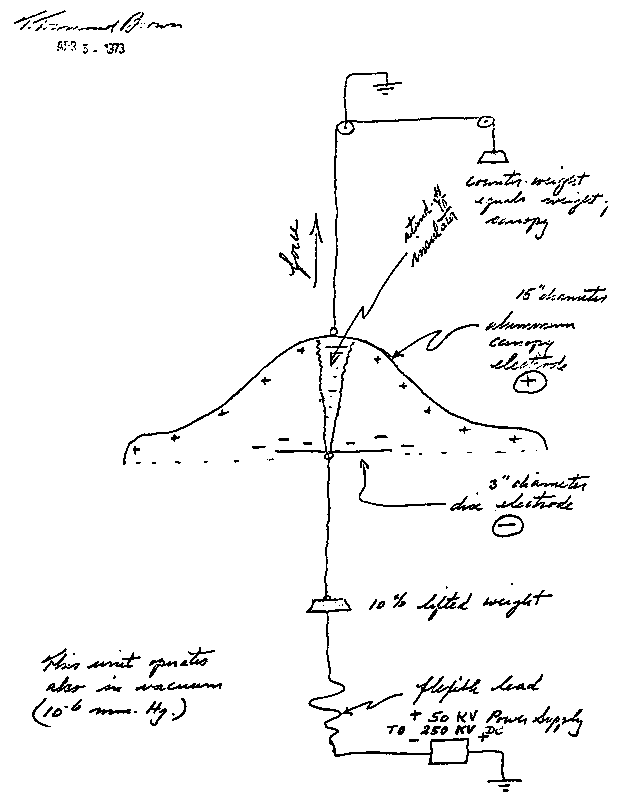 T. Townsend Brown
APR 3 - 1973
counter-weight
equals weight of
canopy
stand-off
insulator
force
15" diameter
aluminum
canopy
electrode
+
3" diameter
disc electrode
−
10% lifted weight
This unit operates
also in vacuum
(10-6 mm. Hg.)
flexible lead
+ 50 KV Power Supply
TO 250 KV DC
- +